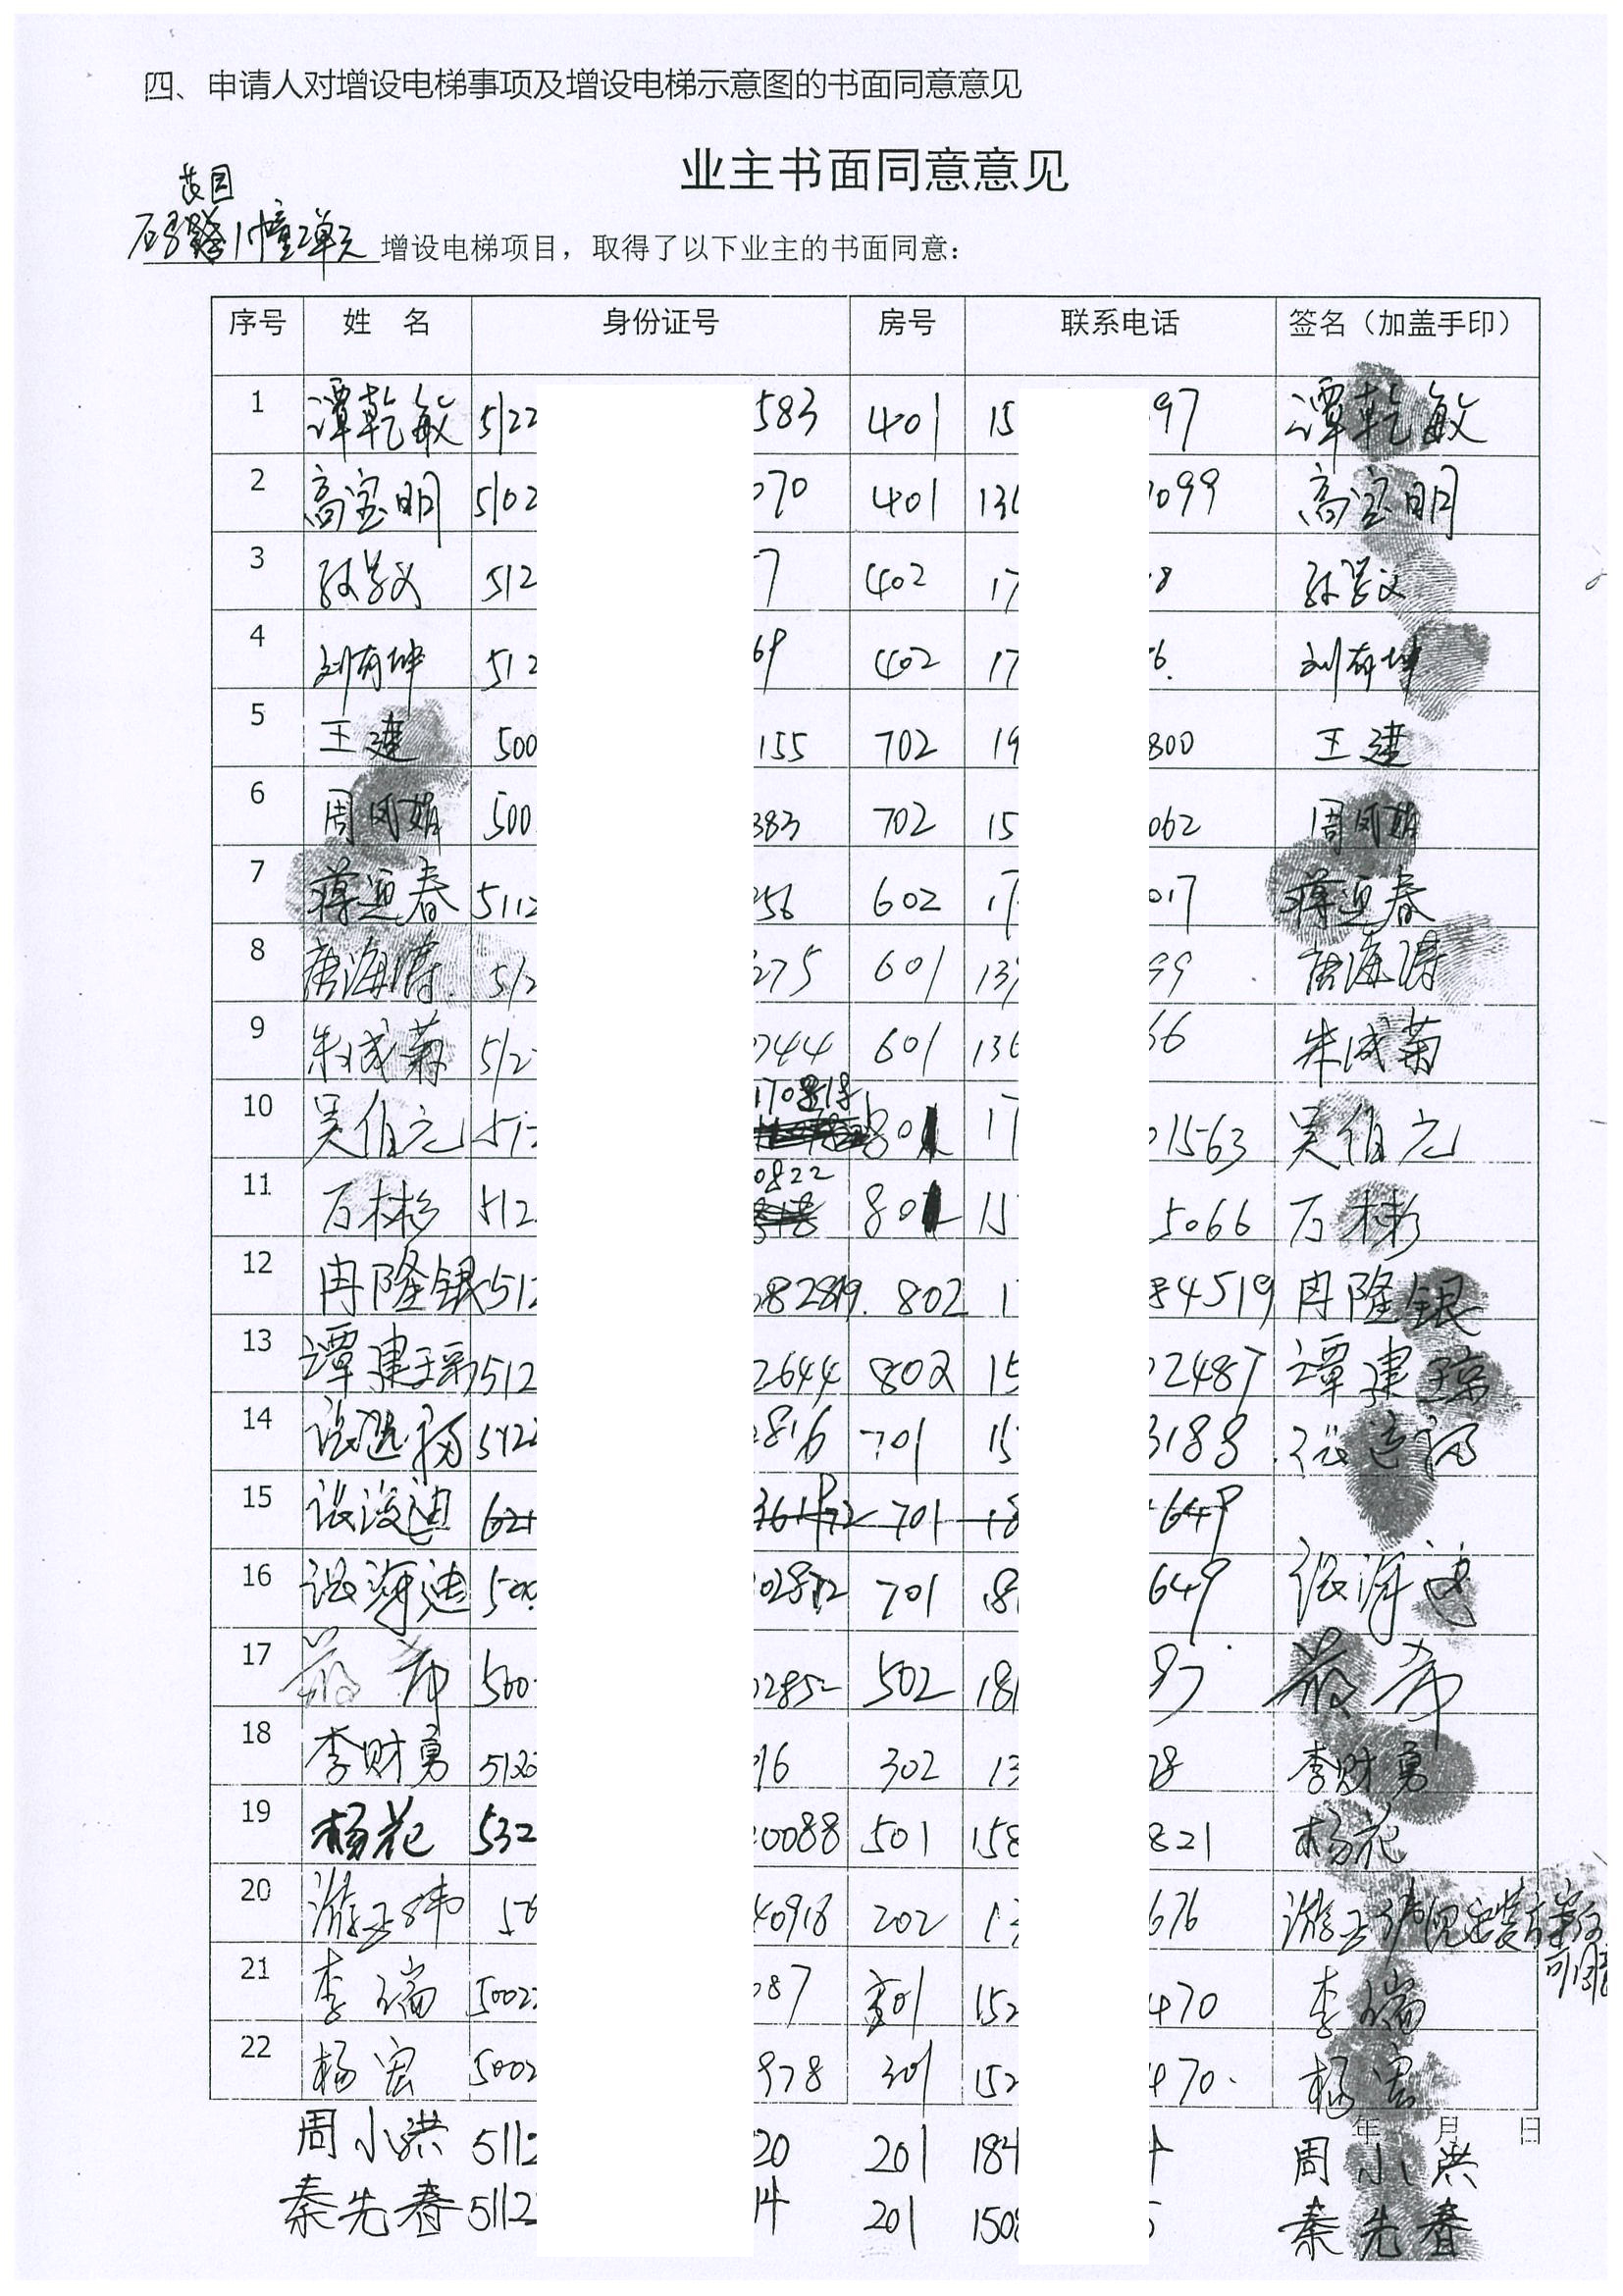 四、申请人对增设电梯事项及增设电梯示意图的书面同意意见
业主书面同意意见
1幢2单元 增设电梯项目，取得了以下业主的书面同意：
序号 姓 名 身份证号 房号 联系电话 签名（加盖手印）
1 谭乾敏 5122 583 401 15 97 谭乾敏
2 高宝明 5102 070 401 136 099 高宝明
3 512 7 402 17 8 
4 刘有坤 512 69 402 17 6. 刘有坤
5 王建 500 155 702 19 800 王建
6 周凤娟 500 383 702 15 062 周凤娟
7 蒋迎春 5112 256 602 17 017 蒋迎春
8 唐海涛 512 275 601 139 99 唐海涛
9 朱成菊 512 744 601 136 66 朱成菊
10 吴伯元 512 801 17 01563 吴伯元
11 万彬 512 0822 80 15 5066 万彬
12 冉隆银 512 802 1 84519 冉隆银
13 谭建琼 512 2644 802 15 2487 谭建琼
14 512 2816 701 15 3188
15 701 18 649
16 张海迪 500 701 18 649 张海迪
17 500 02852 502 181
18 李财勇 512 96 302 13 28 李财勇
19 杨花 532 20088 501 158 821 杨花
20 40918 202 13 676
21 李瑞 5002 087 301 152 470 李瑞
22 杨宏 5002 978 301 152 470. 杨宏
年 月 日
周小洪 5112 20 201 184 4 周小洪
秦先春 5112 14 201 150 秦先春